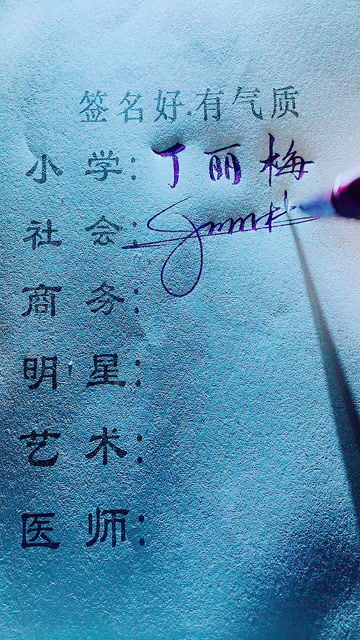 签名好.有气质
小 学: 丁丽梅
社 会:
商 务:
明 星:
艺 术:
医 师: